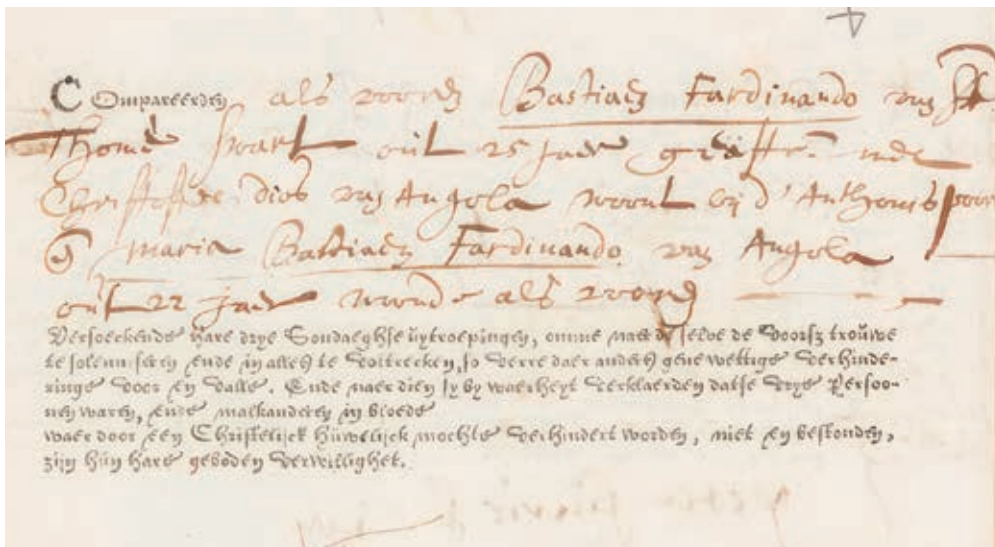 Compareerden als vooren Bastiaen Fardinando van St.
Thome swart out 25 Jaer
Christoffel dios van Angola woont bij d' Anthonis poort
en Maria Bastiaen Fardinando van Angola
out 22 Jaer woonde als vooren
Versoeckende hare drye Sondaeghse uytroepingen, omme naer de selve de voorsz trouwe
te solemniseren ende in alles te voltrecken, so verre daer anders gene wettige verhinde-
ringe voor en valle. Ende naer dien sy by waerheyt verklaerden datse vrye Persoo-
nen waren, ende malkanderen in bloede
waer door een Christelijck huwelijck mochte verhindert worden, niet en bestonden,
zijn hun hare geboden verwillighet.